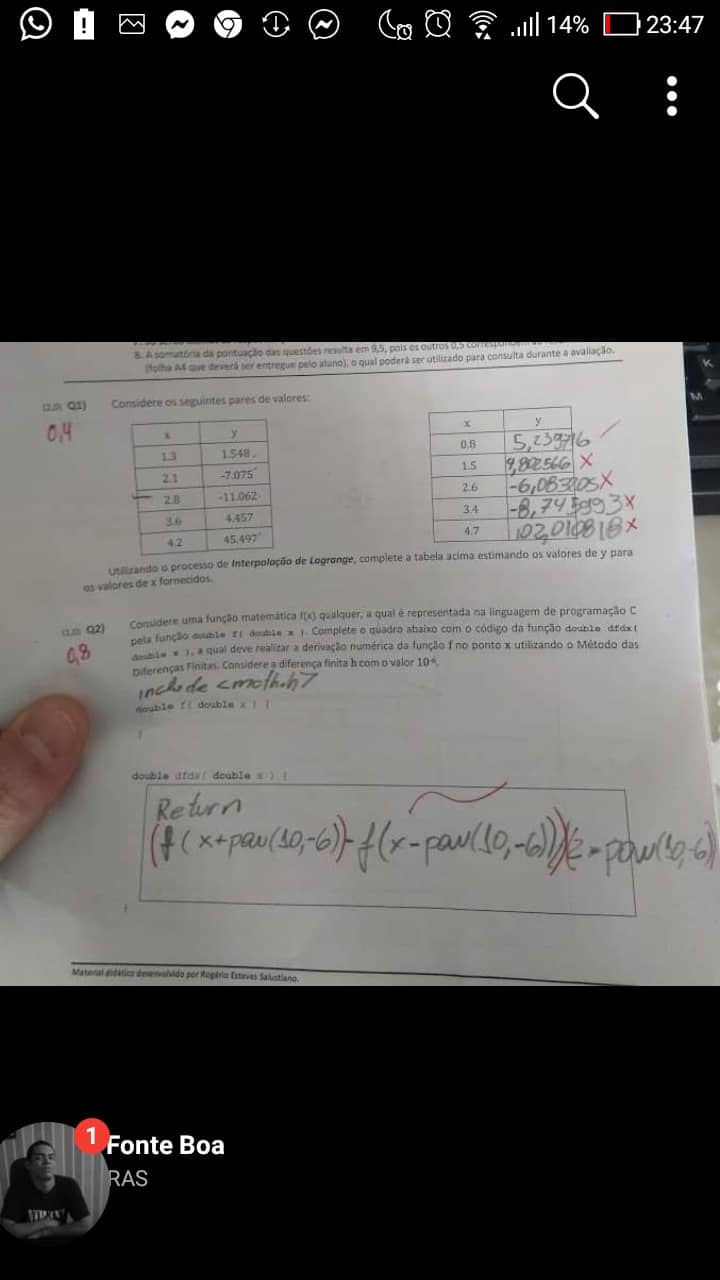 14% 23:47
8. A somatória da pontuação das questões resulta em 9,5, pois os outros 0,5
(folha A4 que deverá ser entregue pelo aluno), o qual poderá ser utilizado para consulta durante a avaliação.
(2,0) Q1) Considere os seguintes pares de valores:
0,4
x y
1.3 1.548
2.1 -7.075
2.8 -11.062
3.6 4.457
4.2 45.497
x y
0.8 5,239716
1.5 9,802566 X
2.6 -6,083205 X
3.4 -8,745993 X
4.7 102,010818 X
Utilizando o processo de Interpolação de Lagrange, complete a tabela acima estimando os valores de y para
os valores de x fornecidos.
(1,0) Q2) Considere uma função matemática f(x) qualquer, a qual é representada na linguagem de programação C
0,8
pela função double f( double x ). Complete o quadro abaixo com o código da função double dfdx(
double x ), a qual deve realizar a derivação numérica da função f no ponto x utilizando o Método das
Diferenças Finitas. Considere a diferença finita h com o valor 10⁻⁶.
include <math.h>
double f( double x ) {
}
double dfdx( double x ) {
Return
(f(x+pow(10,-6))-f(x-pow(10,-6)))/2*pow(10,-6)
}
Material didático desenvolvido por Rogério Esteves Salustiano.
K
M
1
Fonte Boa
RAS